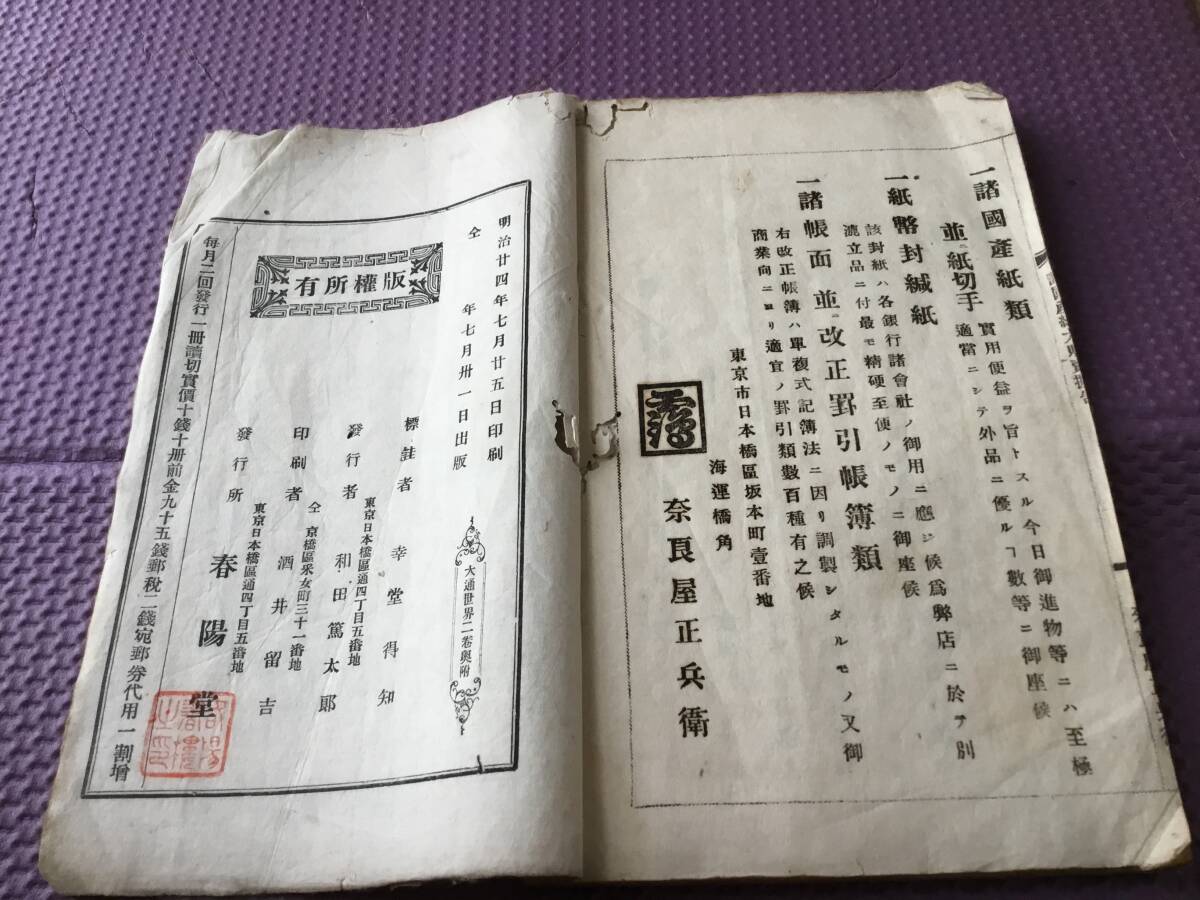 一諸國產紙類
並ニ紙切手
實用便益ヲ旨トスル今日御進物等ニハ至極
適當ニシテ外品ニ優ルヿ數等ニ御座候
一紙幣封緘紙
該封紙ハ各銀行諸會社ノ御用ニ應ジ候爲弊店ニ於テ別
漉立品ニ付最モ精硬至便ノモノニ御座候
一諸帳面並ニ改正罫引帳簿類
右改正帳簿ハ單複式記簿法ニ因リ調製シタルモノ又御
商業向ニヨリ適宜ノ罫引類數百種有之候
東京市日本橋區坂本町壹番地
海運橋角
奈良屋正兵衛
大通世界二卷奥附
明治廿四年七月廿五日印刷
仝年七月卅一日出版
版權所有
標註者 幸堂得知
東京日本橋區通四丁目五番地
發行者 和田篤太郎
仝京橋區采女町三十一番地
印刷者 酒井留吉
東京日本橋區通四丁目五番地
發行所 春陽堂
每月二回發行一冊讀切實價十錢十冊前金九十五錢郵稅二錢宛郵券代用一割增